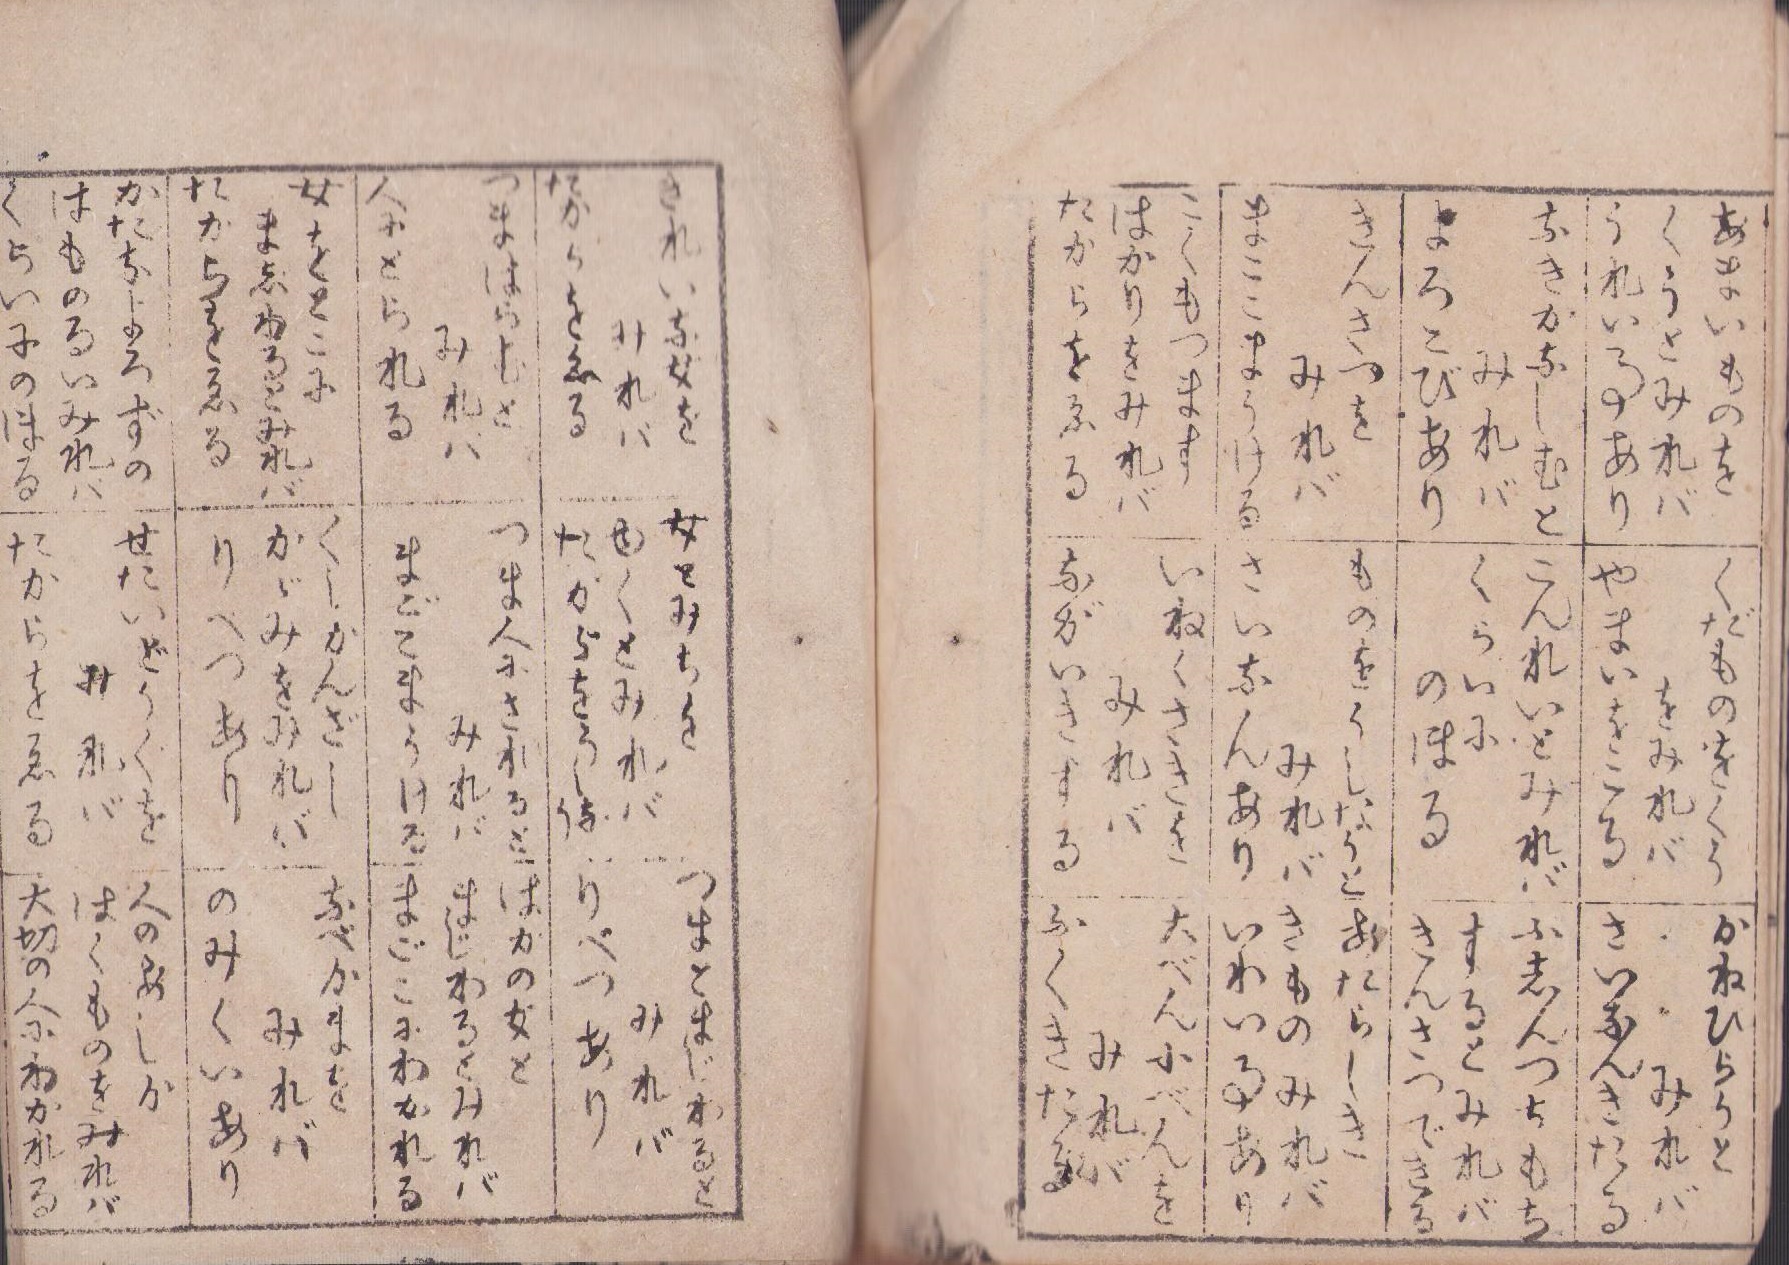 あまいものを
くうとみれバ
うれい事あり
なきかなしむと
みれバ
よろこびあり
きんさつを
みれバ
まこともうける
こくもつます
はかりをみれバ
たからをゑる
くだものをくう
をみれバ
やまいをこる
こんれいとみれバ
くらいに
のぼる
ものをうしなうと
みれバ
さいなんあり
いねくさきを
みれバ
ながいきする
かねひらうと
みれバ
さいなんきたる
ふしんつちもち
するとみれバ
きんさつできる
あたらしき
きものみれバ
いわい事あり
大べん小べんを
みれバ
ふくきたる
きれいな女を
みれバ
たからをゑる
つまはらむと
みれバ
人にとられる
女をとこに
まじわるとみれバ
たからをゑる
かたなよろずの
はものるいみれバ
くらいにのぼる
女とみちを
ゆくとみれバ
たからをうしなう
つま人にされると
みれバ
まごてもうける
くしかんざし
かゞみをみれバ
りべつあり
せたいどうぐを
みれバ
たからをゑる
つまとまじわると
みれバ
りべつあり
ほかの女と
まじわるとみれバ
まごにわかれる
なべかまを
みれバ
のみくいあり
人のあしか
はくものをみれバ
大切の人にわかれる